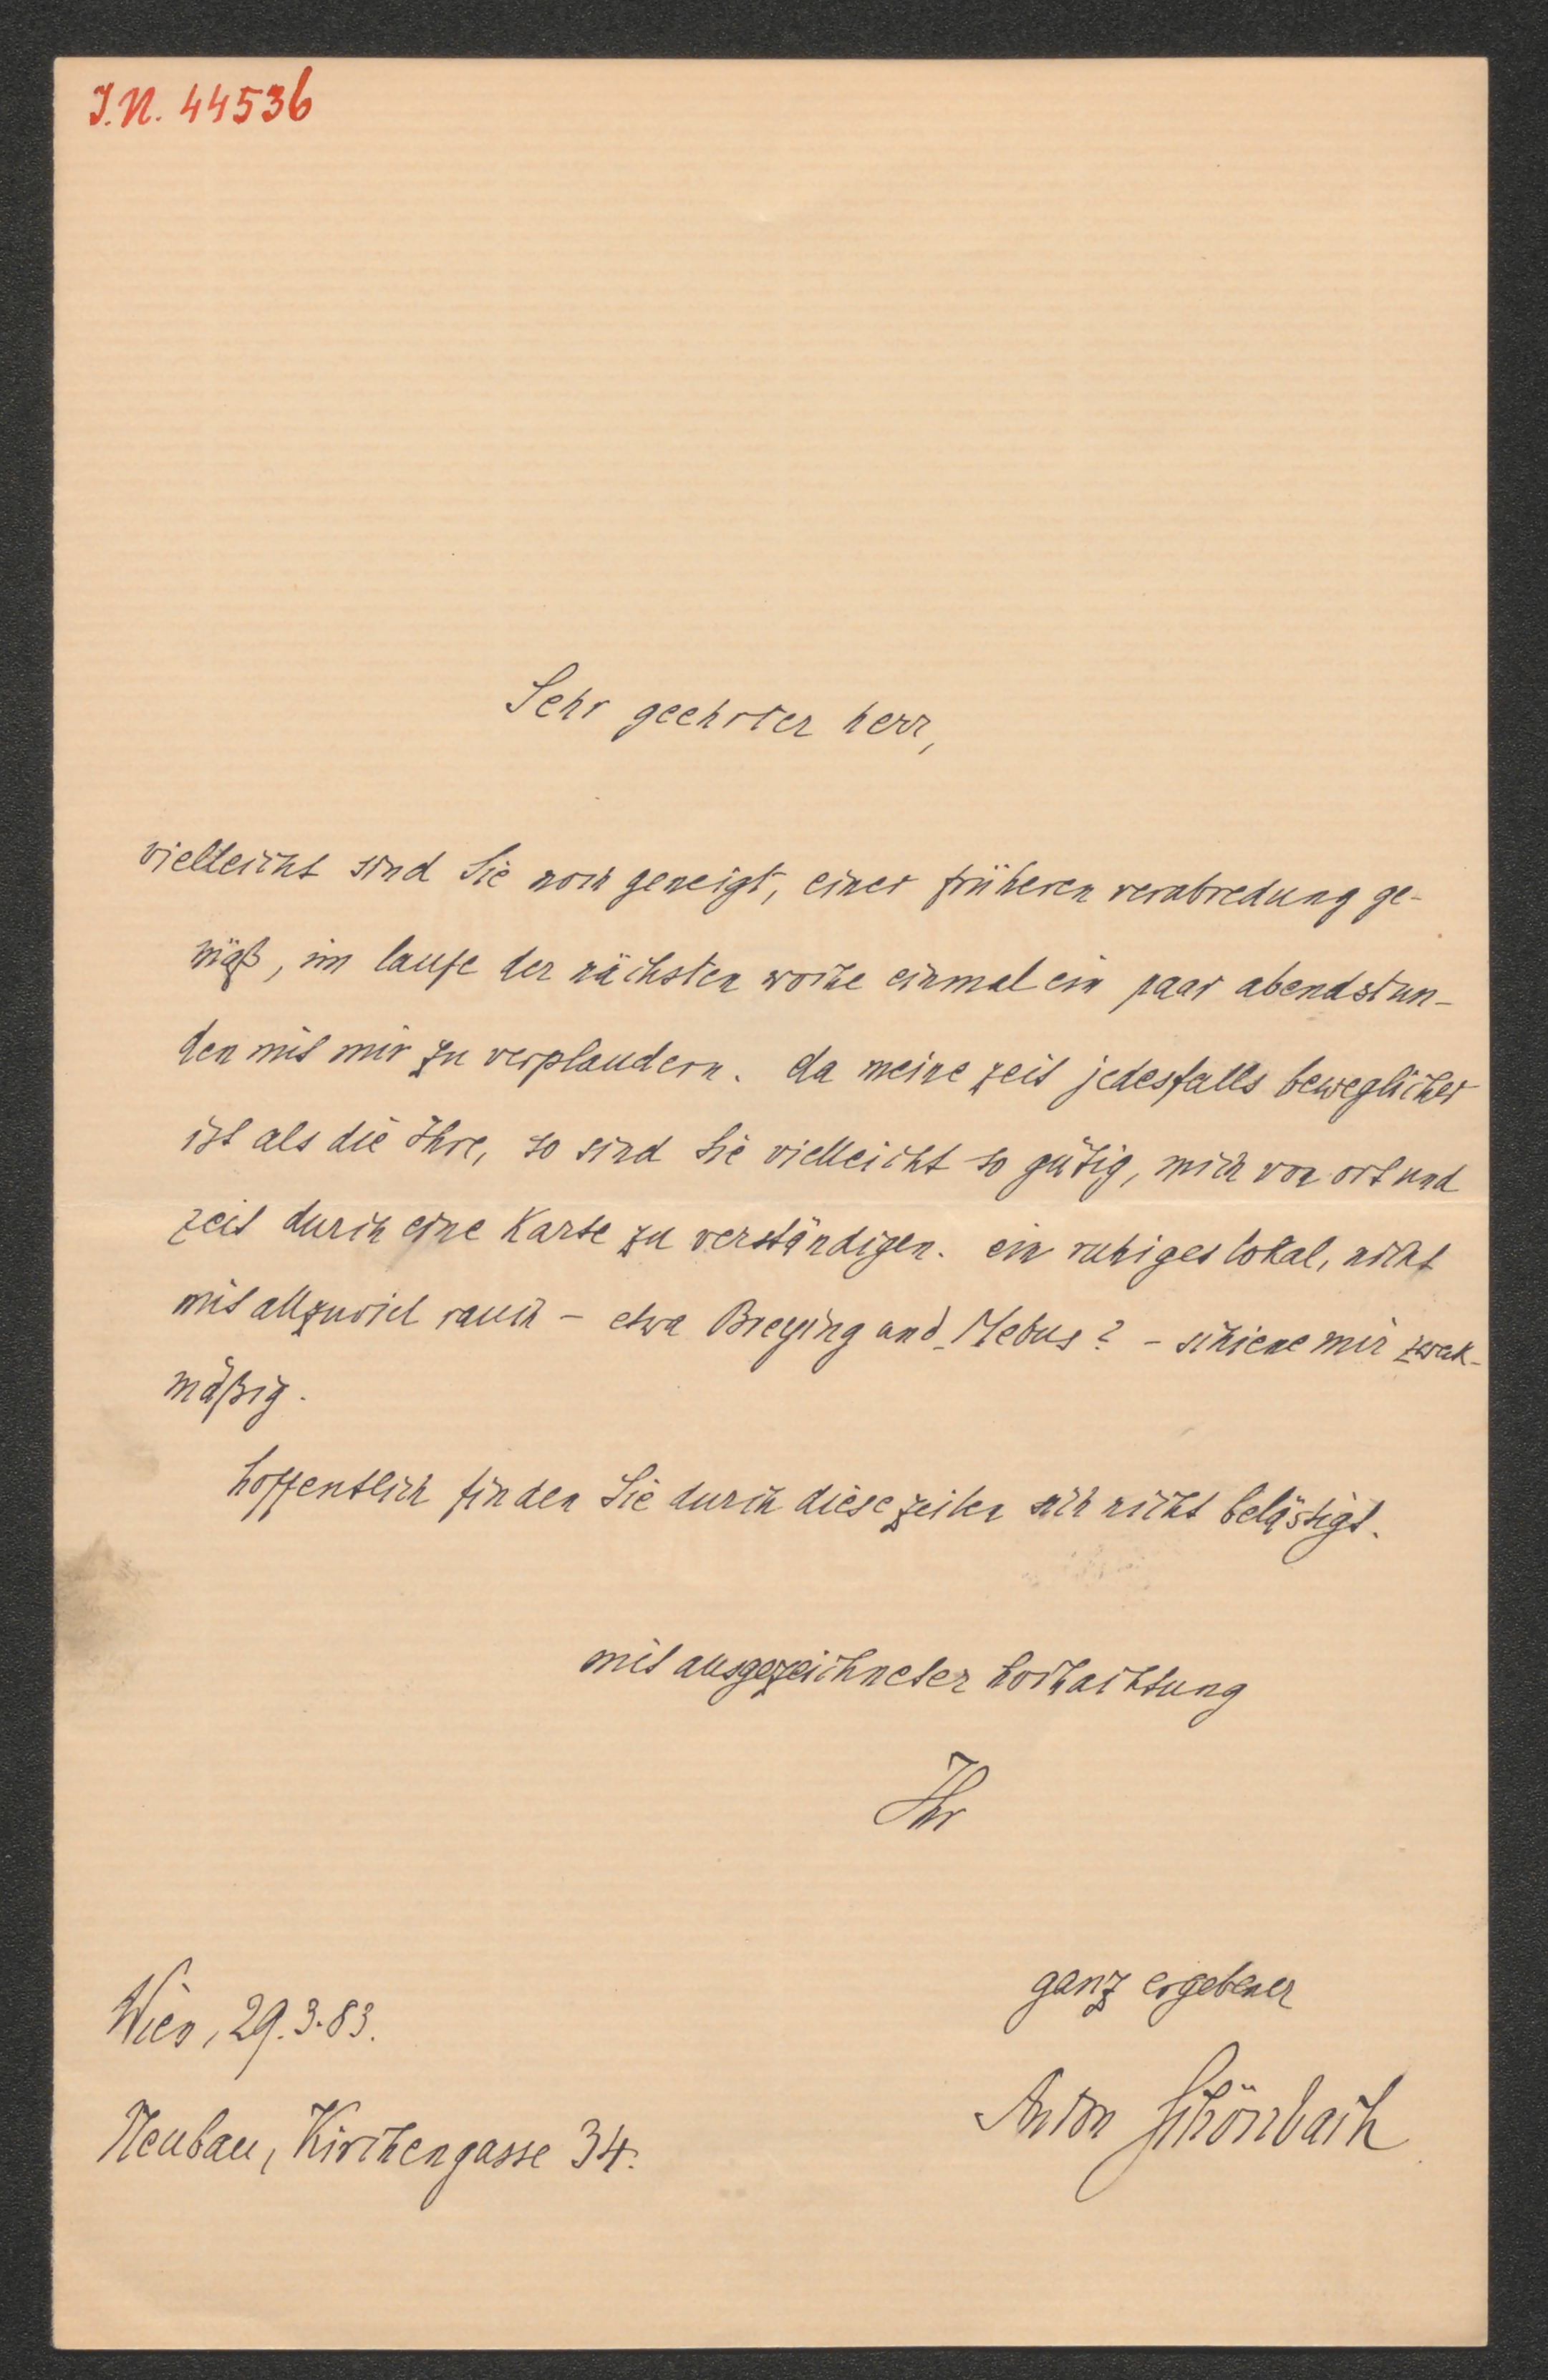 I.N. 44536
Sehr geehrter herr,
vielleicht sind Sie noch geneigt, einer früheren verabredung ge-
mäß, im laufe der nächsten woche einmal ein paar abendstun-
den mit mir zu verplaudern. da meine zeit jedesfalls beweglicher
ist als die Ihre, so sind Sie vielleicht so gütig, mich von ort und
zeit durch eine Karte zu verständigen. ein ruhiges lokal, nicht
mit allzuviel rauch – etwa Breying und Mebus? – schiene mir zwek-
mäßig.
hoffentlich finden Sie durch diese zeilen sich nicht belästigt.
mit ausgezeichneter hochachtung
Ihr
ganz ergebener
Anton Schönbach
Wien, 29.3.83.
Neubau, Kirchengasse 34.